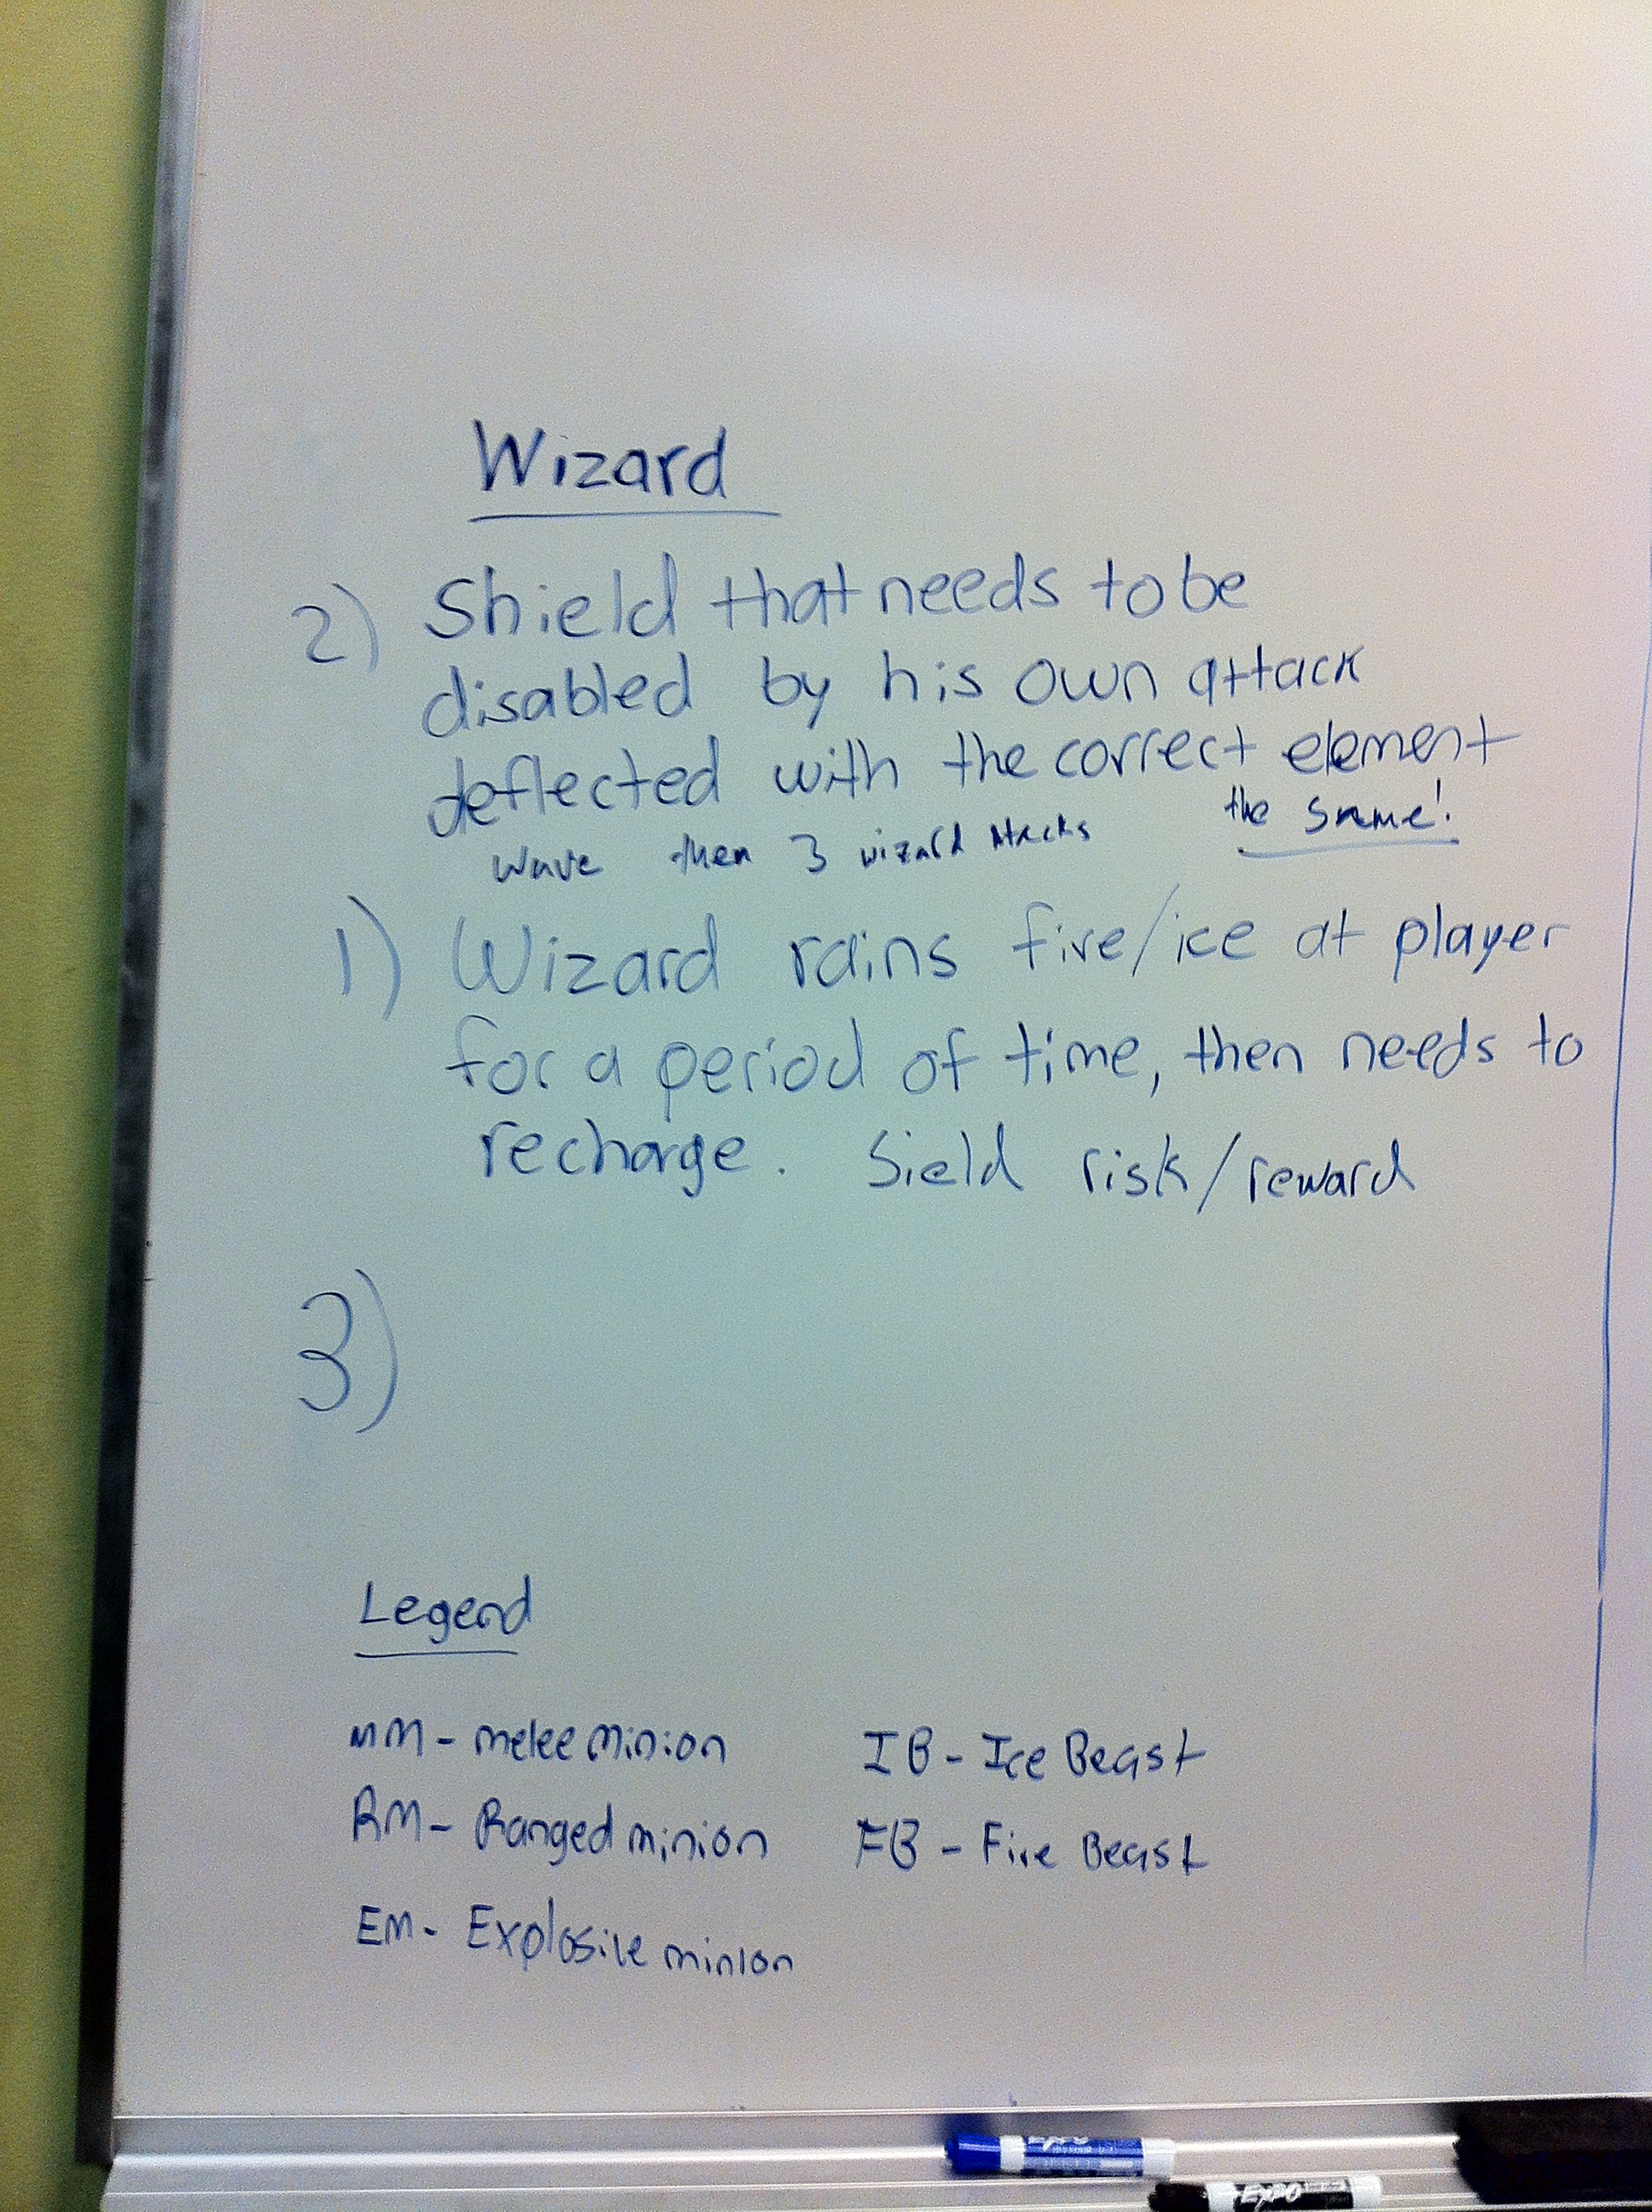 Wizard
2) Shield that needs to be
disabled by his own attack
deflected with the correct element
the same!
wave then 3 wizard attacks
1) Wizard rains fire/ice at player
for a period of time, then needs to
recharge. Sield risk/reward
3)
Legend
MM - melee Minion
RM - Ranged minion
EM - Explosive minion
IB - Ice Beast
FB - Fire Beast
EXPO
EXPO